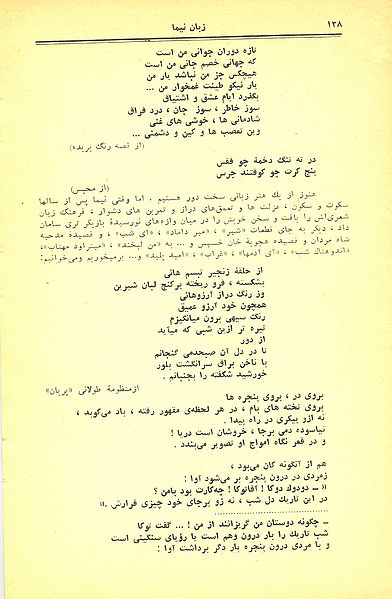 ۱۳۸
زبان نیما
تازه دوران جوانی من است
که جهانی خصم جانی من است
هیچکس جز من نباشد یار من
یار نیکو طینت غمخوار من ...
بگذرد ایام عشق و اشتیاق
سوز خاطر ، سوز جان ، درد فراق
شادمانی ها ، خوشی های غنی
وین تعصب ها و کین و دشمنی ...
(از قصه رنگ پریده)
در ته تنگ دخمهٔ چو قفس
پنج کرت چو کوفتند جرس
(از محبس)
هنوز از یك هنر زبانی سخت دور هستیم . اما وقتی نیما پس از سالها
سکوت و سکون ، عزلت ها و تعمق‌های دراز و تمرین های دشوار ، فرهنگ زبان
شعری‌اش را یافت و سخن خویش را در میان واژه‌های نورسیدهٔ باریکتری سامان
داد ، دیگر به جای قطعات «شیر» ، «میر داماد» ، «ای شب» ، و قصیدهٔ مدحیه
شاه مردان و قصیده هجویهٔ خان خسیس و ... به «من لبخند» ، «میتراود مهتاب» ،
«اندوهناك شب» ، «ای آدمها» ، «غراب» ، «امید پلید» و... برمیخوریم ومی‌خوانیم:
از حلقهٔ زنجیر تبسم هائی
بشکسته ، فرو ریخته برکنج لبان شیرین
وز رنگ دراز آرزوهائی
همچون خود آرزو عمیق
رنگ سیهی برون میانگیزم
تیره تر ازین شبی که میآید
از دور
تا در دل آن صبحدمی گنجانم
با ناخن براق سرانگشت بلور
خورشید شکفته را بجنبانم .
ازمنظومهٔ طولانی «پریان»
بروی در ، بروی پنجره ها
بروی تخته های بام ، در هر لحظه‌ی مقهور رفته ، باد می‌کوبد ،
نه ازو پیکری در راه پیدا .
نیاسوده دمی برجا ، خروشان است دریا !
و در قعر نگاه امواج او تصویر می‌بندد .
هم از آنگونه کان می‌بود ،
زمردی در درون پنجره بر می‌شود آوا :
« ــ دودوك دوکا ! آقاتوکا ! چه‌کارت بود بامن ؟
در این تاریك دل شب ، نه زو برجای خود چیزی قرارش .»
ــ چگونه دوستان من گریزانند از من ! ... گفت توکا
شب تاریك را بار درون وهم است یا رؤیای سنگینی است
و با مردی درون پنجره بار دگر برداشت آوا :